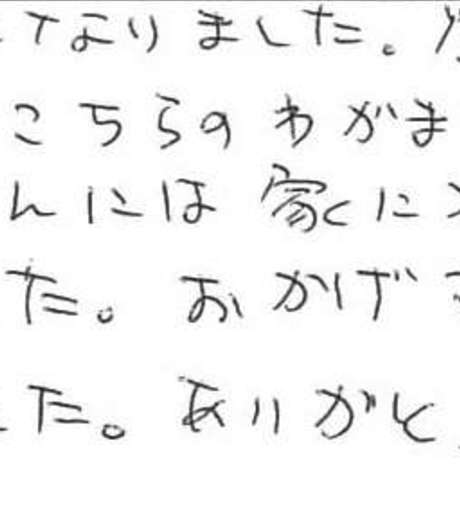 てなりました。
こちらのわがま
んには家に
た。おかげ
した。ありがと